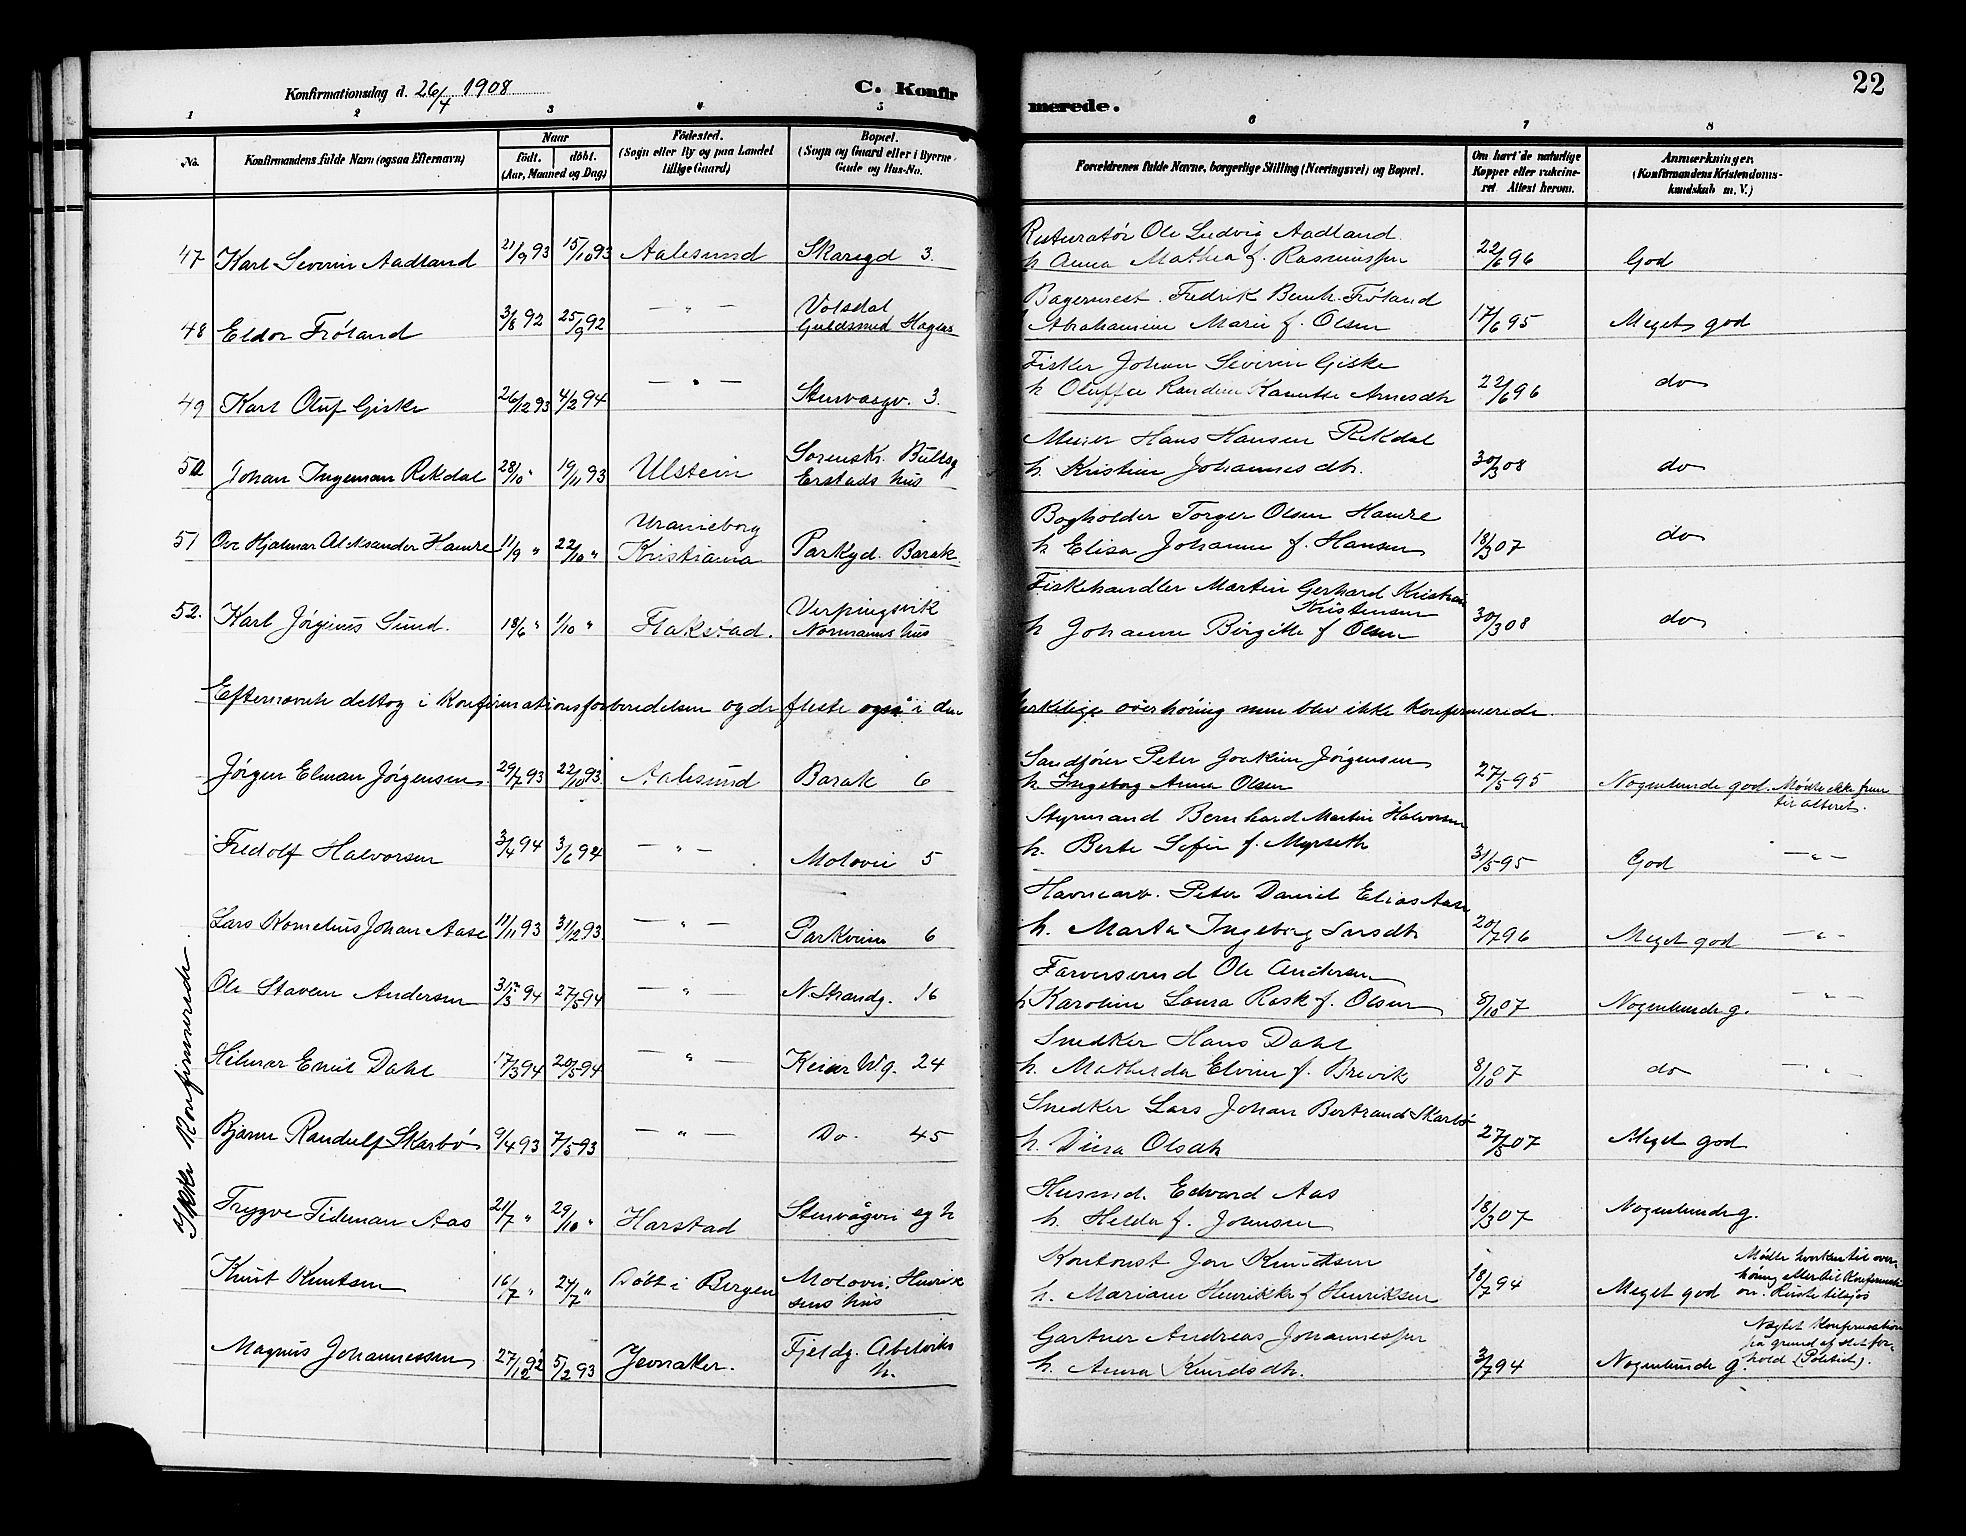 Konfirmationsdag d. 26/4 1908
C. Konfirmerede.
22
1 2 3 4 5 6 7 8
No.
Konfirmandens fulde Navn (ogsaa Efternavn)
Naar
födt. döbt.
(Aar, Maaned og Dag)
Födested.
(Sogn eller By og paa Landet
tillige Gaard)
Bopæl.
(Sogn og Gaard eller i Byerne
Gade og Hus-No.
Forældrenes fulde Navne, borgerlige Stilling (Næringsvei) og Bopæl.
Om havt de naturlige
Kopper eller vakcine-
ret Attest herom.
Anmærkninger.
(Konfirmandens Kristendoms-
kundskab m. V.)
47 Karl Severin Aadland 21/9 93 15/10 93 Aalesund Skaregd 3.
Restauratør Ole Ludvig Aadland
h. Anna Mathea f. Rasmussen 22/6 96 God
48 Eldor Frøland 3/8 92 25/9 92 — " — Volsdal
Guldsmed Hagens
Bagermest. Fredrik Bernh. Frøland
Abrahamine Marie f. Olsen 17/6 95 Meget god
49 Karl Oluf Giske 26/12 93 4/2 94 — " — Stenvaagv. 3.
Fisker Johan Severin Giske
h. Oluffa Randine Kanutte Arnesdtr 22/6 96 do
50 Johan Ingeman Rekdal 28/10 " 19/11 93 Ulstein Sorensk. Bullsg
Erstads hus
Murer Hans Hansen Rekdal
h. Kristine Johannesdtr. 30/3 08 do
51 Ove Hjalmar Aleksander Hamre 11/9 " 22/10 " Uranieborg
Kristiania Parkgd. Barak
Bogholder Torger Olsen Hamre
h. Elisa Johanne f. Hansen 18/3 07 do
52. Karl Jørginus Sund. 18/6 " 1/10 " Flakstad. Verpingsvik
Normanns hus
Fiskehandler Martin Gerhard Kristian
Kristensen
h. Johanne Birgitte f Olsen 30/3 08 do
Efternævnte deltog i Konfirmationsforberedelsen og de fleste også i den
kirkelige overhöring men blev ikke konfirmerede.
Ikke Konfirmerede.
Jörgen Elman Jörgensen 29/7 93 22/10 93 Aalesund Barak 6
Sandfører Peter Joakim Jörgensen
h. Ingeborg Anna Olsen 27/5 95 Nogenlunde god. Mødte ikke frem
til alteret.
Fredolf Halvorsen 3/4 94 3/6 94 — " — Moloveien 5
Styrmand Bernhard Martin Halvorsen
h. Berte Sofie f. Myrseth 31/5 95 God — " —
Lars Kornelius Johan Aase 11/11 93 31/12 93 — " — Parkveien 6
Havnearb. Peter Daniel Elias Aase
h. Marta Ingeborg Larsdtr 20/7 96 Meget god — " —
Ole Stavem Andersen 31/3 94 27/5 94 — " — N. Strandg. 16
Farversvend Ole Andersen
h Karoline Laura Rosk f. Olsen 8/10 07 Nogenlunde g. — " —
Hilmar Emil Dahl 17/3 94 20/5 94 — " — Keiser Wg. 24
Snedker Hans Dahl
h. Mathilda Elvine f. Brevik 8/10 07 do — " —
Bjarne Randulf Skarbö 9/4 93 7/5 93 — " — Do. 45
Snedker Lars Johan Bertrand Skarbö
h. Disa Olsdtr 27/5 07 Meget god
Trygve Tideman Aas 21/7 " 29/10 " Harstad Stenvågvei eg h
Husmd. Edvard Aas
h. Helda f. Johnsen 18/3 07 Nogenlunde g.
Knut Knutsen 16/7 " 24/7 " Döbt i Bergen Moloveien, Henrik
sens hus
Kontorist Jon Knudtsen
h. Mariane Henrikke f Henriksen 18/7 94 Meget god Mødte hverken til over-
höring eller til Konfirmati
on. Reiste tilsjøs
Magnus Johannessen 27/12 92 5/2 93 Jevnaker. Fjeldg. Abelviks
h.
Gartner Andreas Johannessen
h. Anna Knudsdtr. 3/7 94 Nogenlunde g. Nægtet Konfirmation
på grund af slet for-
hold (Politiet).